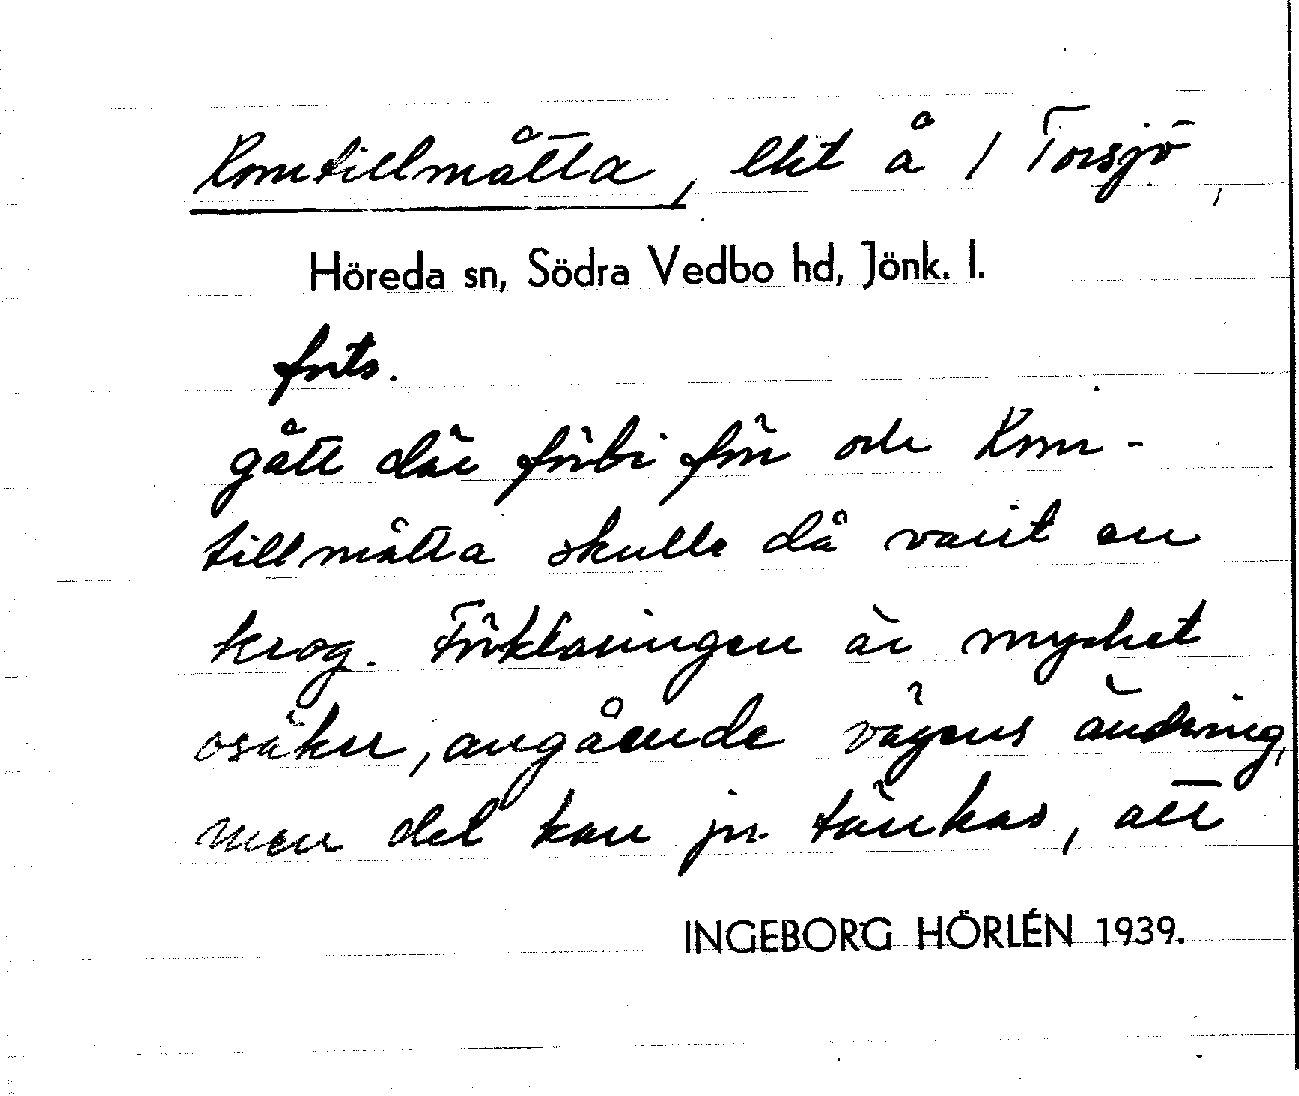 Komtillmåtta, lht å 1 Torsjö,
Höreda sn, Södra Vedbo hd, Jönk. l.
forts.
gått där förbi förr och Kom-
tillmåtta skulle då varit en
krog. Förklaringen är mycket
osäker, angående vägens ändring,
men det kan ju tänkas, att
INGEBORG HÖRLÉN 1939.